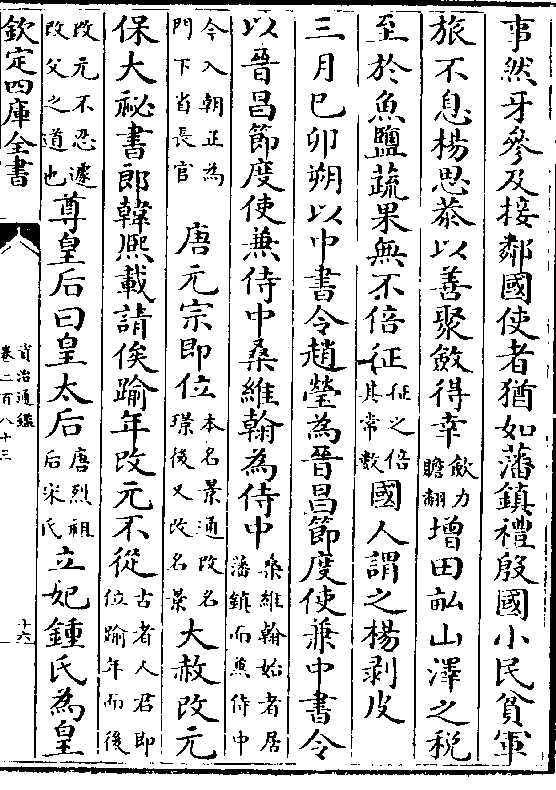 事然牙參及接鄰國使者猶如藩鎮禮殷國小民貧軍
旅不息楊思恭以善聚斂得幸斂力贍翻增田畝山澤之稅
至於魚鹽蔬果無不倍征征之倍其常數國人謂之楊剥皮
三月己卯朔以中書令趙瑩為晉昌節度使兼中書令
以晉昌節度使兼侍中桑維翰為侍中桑維翰始者居藩鎮而兼侍中
今入朝正為門下省長官　唐元宗即位本名景通改名璟後又改名景大赦改元
保大祕書郎韓熙載請俟踰年改元不從古者人君即位踰年而後
改元不忍遽改父之道也尊皇后曰皇太后唐烈祖后宋氏立妃鍾氏為皇
欽定四庫全書
資治通鑑
卷二百八十三
十六